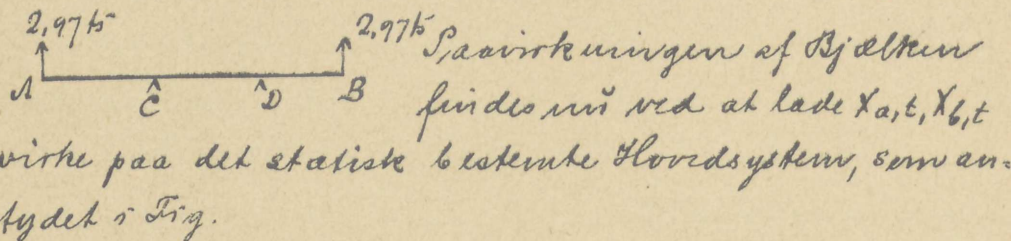 2,97 ts
2,97 ts
A
C
D
B
Paavirkningen af Bjælken
findes nu ved at lade Xa,t, Xb,t
virke paa det statisk bestemte Hovedsystem, som an=
tydet i Fig.